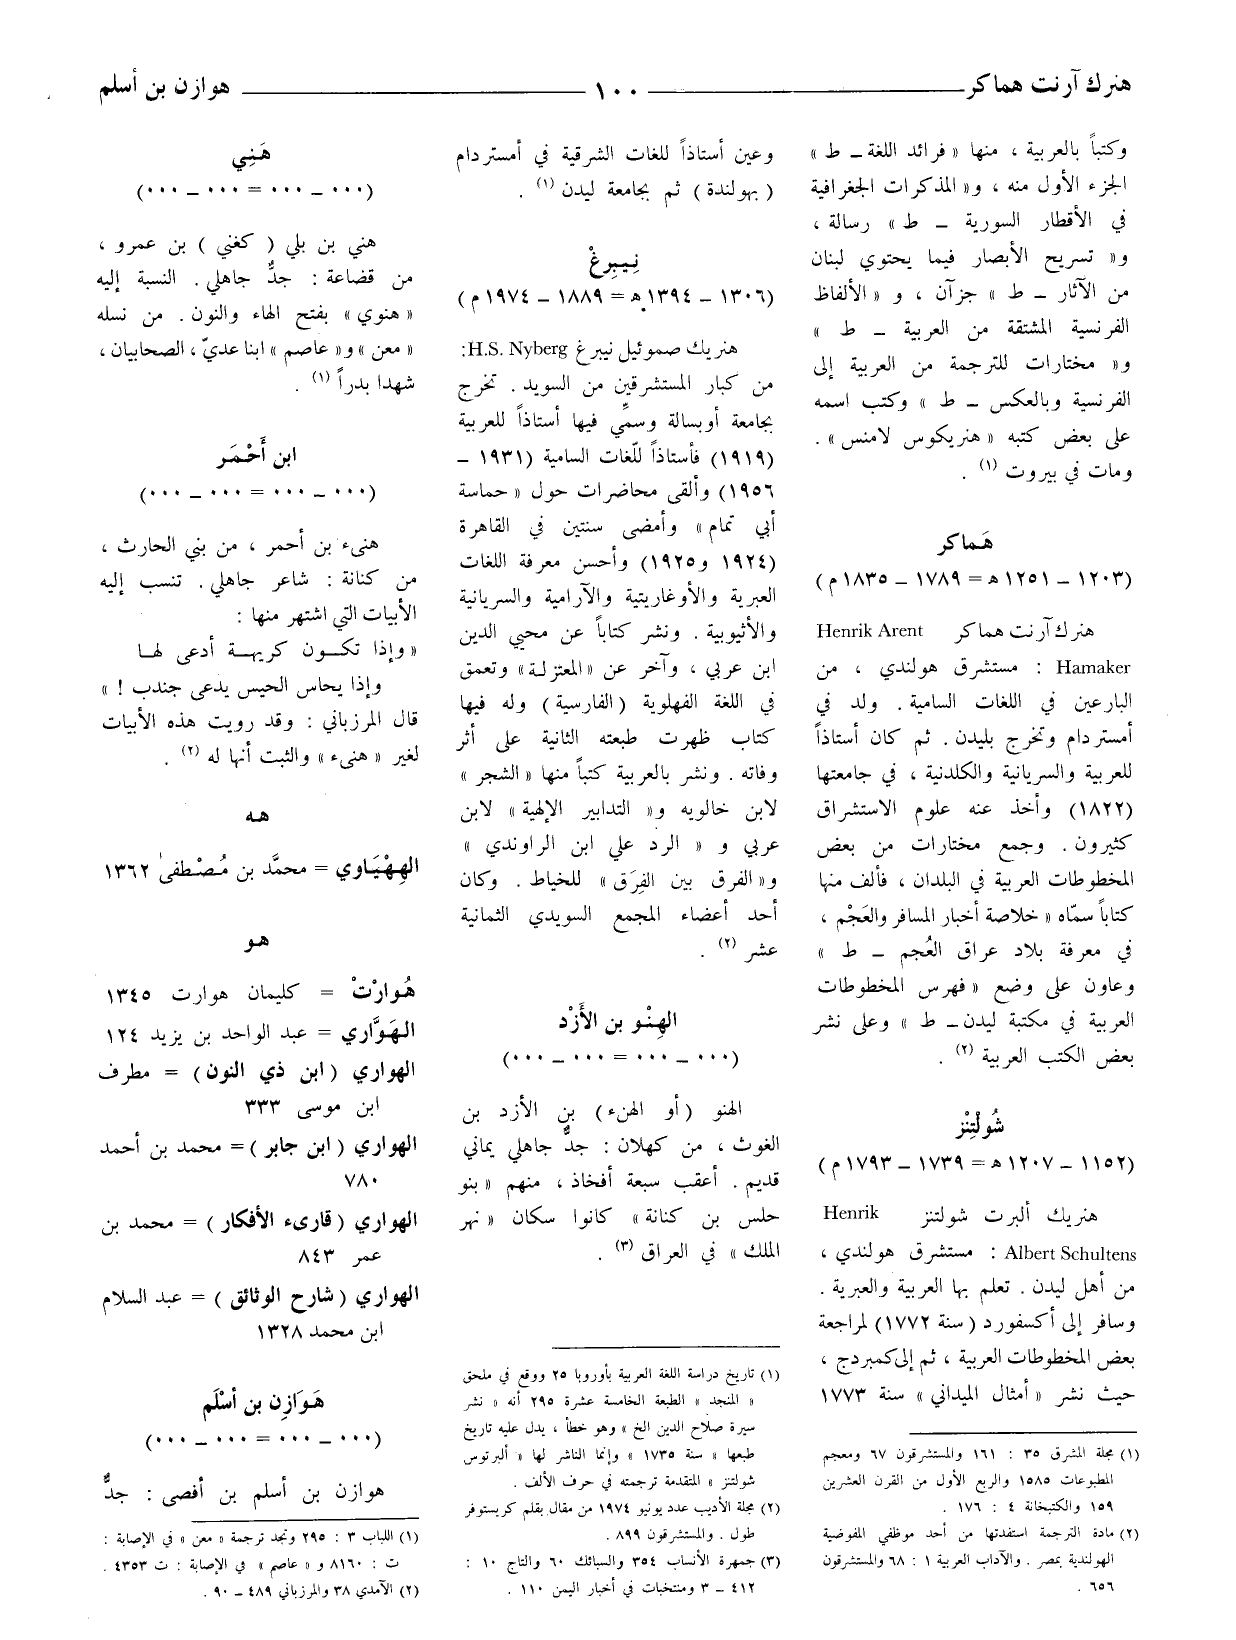 هنرك آرنت هماكر ١٠٠ هوازن بن أسلم
وكتباً بالعربية ، منها « فرائد اللغة ـ ط »
الجزء الأول منه ، و« المذكرات الجغرافية
في الأقطار السورية ـ ط » رسالة ،
و« تسريح الأبصار فيما يحتوي لبنان
من الآثار ـ ط » جزآن ، و « الألفاظ
الفرنسية المشتقة من العربية ـ ط »
و« مختارات للترجمة من العربية إلى
الفرنسية وبالعكس ـ ط » وكتب اسمه
على بعض كتبه « هنريكوس لامنس » .
ومات في بيروت (١) .
هَماكر
(١٢٠٣ ـ ١٢٥١ ه‍ = ١٧٨٩ ـ ١٨٣٥ م)
هنرك آرنت هماكر Henrik Arent
Hamaker : مستشرق هولندي ، من
البارعين في اللغات السامية . ولد في
أمستردام وتخرج بليدن . ثم كان أستاذاً
للعربية والسريانية والكلدنية ، في جامعتها
(١٨٢٢) وأخذ عنه علوم الاستشراق
كثيرون . وجمع مختارات من بعض
المخطوطات العربية في البلدان ، فألف منها
كتاباً سمّاه « خلاصة أخبار المسافر والعَجْم ،
في معرفة بلاد عراق العُجم ـ ط »
وعاون على وضع « فهرس المخطوطات
العربية في مكتبة ليدن ـ ط » وعلى نشر
بعض الكتب العربية (٢) .
شُولْتِنْز
(١١٥٢ ـ ١٢٠٧ ه‍ = ١٧٣٩ ـ ١٧٩٣ م)
هنريك ألبرت شولتنز Henrik
Albert Schultens : مستشرق هولندي ،
من أهل ليدن . تعلم بها العربية والعبرية .
وسافر إلى أكسفورد ( سنة ١٧٧٢) لمراجعة
بعض المخطوطات العربية ، ثم إلى كمبردج ،
حيث نشر « أمثال الميداني » سنة ١٧٧٣
(١) مجلة المشرق ٣٥ : ١٦١ والمستشرقون ٦٧ ومعجم
المطبوعات ١٥٨٥ والربع الأول من القرن العشرين
١٥٩ والكتبخانة ٤ : ١٧٦ .
(٢) مادة الترجمة استفدتها من أحد موظفي المفوضية
الهولندية بمصر . والآداب العربية ١ : ٦٨ والمستشرقون
٦٥٦ .
وعين أستاذاً للغات الشرقية في أمستردام
( بهولندة ) ثم بجامعة ليدن (١) .
نِيبِرغْ
(١٣٠٦ ـ ١٣٩٤ ه‍ = ١٨٨٩ ـ ١٩٧٤ م)
هنريك صموئيل نيبرغ H.S. Nyberg:
من كبار المستشرقين من السويد . تخرج
بجامعة أوبسالة وسمّي فيها أستاذاً للعربية
(١٩١٩) فأستاذاً للّغات السامية (١٩٣١ ـ
١٩٥٦) وألقى محاضرات حول « حماسة
أبي تمام » وأمضى سنتين في القاهرة
(١٩٢٤ و١٩٢٥) وأحسن معرفة اللغات
العبرية والأوغاريتية والآرامية والسريانية
والأثيوبية . ونشر كتاباً عن محيي الدين
ابن عربي ، وآخر عن «المعتزلة» وتعمق
في اللغة الفهلوية (الفارسية) وله فيها
كتاب ظهرت طبعته الثانية على أثر
وفاته . ونشر بالعربية كتباً منها « الشجر »
لابن خالويه و« التدابير الإلهية » لابن
عربي و « الرد علي ابن الراوندي »
و« الفرق بين الفِرَق » للخياط . وكان
أحد أعضاء المجمع السويدي الثمانية
عشر (٢) .
الهِنْو بن الأَزْد
(٠٠٠ ـ ٠٠٠ = ٠٠٠ ـ ٠٠٠)
الهنو (أو الهنء) بن الأزد بن
الغوث ، من كهلان : جدٌّ جاهلي يماني
قديم . أعقب سبعة أفخاذ ، منهم «بنو
حلس بن كنانة» كانوا سكان «نهر
الملك » في العراق (٣) .
(١) تاريخ دراسة اللغة العربية بأوروبا ٢٥ ووقع في ملحق
« المنجد » الطبعة الخامسة عشرة ٢٩٥ أنه « نشر
سيرة صلاح الدين الخ » وهو خطأ ، يدل عليه تاريخ
طبعها « سنة ١٧٣٥ » وإنما الناشر لها « ألبرتوس
شولتنز » المتقدمة ترجمته في حرف الألف .
(٢) مجلة الأديب عدد يونيو ١٩٧٤ من مقال بقلم كريستوفر
طول . والمستشرقون ٨٩٩ .
(٣) جمهرة الأنساب ٣٥٤ والسبائك ٦٠ والتاج ١٠ :
٤١٢ ـ ٣ ومنتخبات في أخبار اليمن ١١٠ .
هَنِي
(٠٠٠ ـ ٠٠٠ = ٠٠٠ ـ ٠٠٠)
هني بن بلي ( كغني ) بن عمرو ،
من قضاعة : جدٌّ جاهلي . النسبة إليه
« هنوي » بفتح الهاء والنون . من نسله
« معن » و« عاصم » ابنا عديّ ، الصحابيان ،
شهدا بدراً (١) .
ابن أَحْمَر
(٠٠٠ ـ ٠٠٠ = ٠٠٠ ـ ٠٠٠)
هنيء بن أحمر ، من بني الحارث ،
من كنانة : شاعر جاهلي . تنسب إليه
الأبيات التي اشتهر منها :
« وإذا تكـــون كريهــة أدعى لهــا
وإذا يحاس الحيس يدعى جندب ! »
قال المرزباني : وقد رويت هذه الأبيات
لغير « هنيء » والثبت أنها له (٢) .
هه
الهِهْيَاوي = محمَّد بن مُصْطفىٰ ١٣٦٢
هو
هُوارْتْ = كليمان هوارت ١٣٤٥
الهَوَّاري = عبد الواحد بن يزيد ١٢٤
الهواري (ابن ذي النون) = مطرف
ابن موسى ٣٣٣
الهواري ( ابن جابر ) = محمد بن أحمد
٧٨٠
الهواري (قارىء الأفكار ) = محمد بن
عمر ٨٤٣
الهواري (شارح الوثائق ) = عبد السلام
ابن محمد ١٣٢٨
هَوَازِن بن أسْلَم
(٠٠٠ ـ ٠٠٠ = ٠٠٠ ـ ٠٠٠)
هوازن بن أسلم بن أفصى : جدٌّ
(١) اللباب ٣ : ٢٩٥ وتجد ترجمة « معن » في الإصابة :
ت : ٨١٦٠ و « عاصم » في الإصابة : ت ٤٣٥٣ .
(٢) الآمدي ٣٨ والمرزباني ٤٨٩ ـ ٩٠ .